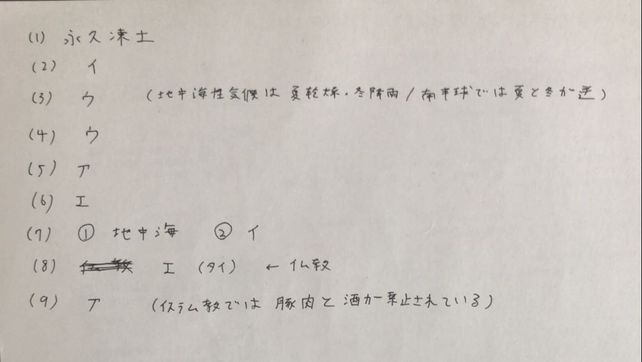 (1) 永久凍土
(2) イ
(3) ウ (地中海性気候は 夏乾燥・冬降雨 / 南半球では夏と冬が逆)
(4) ウ
(5) ア
(6) エ
(7) ① 地中海 ② イ
(8) エ (タイ) ← 仏教
(9) ア (イスラム教では 豚肉と 酒が禁止されている)